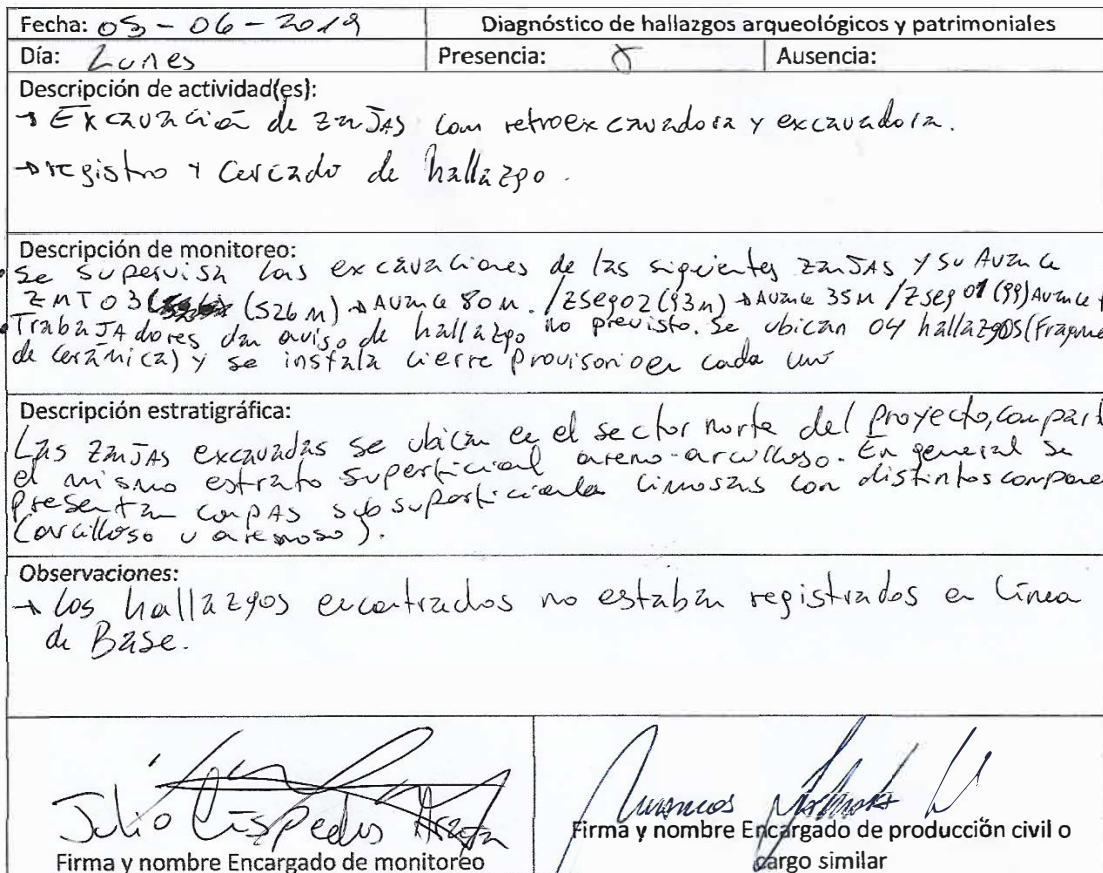 Fecha: 05-06-2019 Diagnóstico de hallazgos arqueológicos y patrimoniales
Día: Lunes Presencia: X Ausencia:
Descripción de actividad(es):
→ Excavación de zanjas con retroexcavadora y excavadora.
→ registro y cercado de hallazgo.
Descripción de monitoreo:
• Se supervisa las excavaciones de las siguientes zanjas y su Avance
ZMT03 (526 m) → Avance 80 m. / Zseg02 (93m) → Avance 35m / Zseg 01 (99) Avance
• Trabajadores dan aviso de hallazgo no previsto. Se ubican 04 hallazgos (Fragme
de cerámica) y se instala cierre provisorio en cada uno
Descripción estratigráfica:
Las zanjas excavadas se ubican en el sector norte del proyecto, compart
el mismo estrato superficial areno-arcilloso. En general se
presentan capas subsuperficiales limosas con distintos compone
(arcilloso u arenoso).
Observaciones:
→ los hallazgos encontrados no estaban registrados en Línea
de Base.
Julio Céspedes Araya
Firma y nombre Encargado de monitoreo
Firma y nombre Encargado de producción civil o
cargo similar